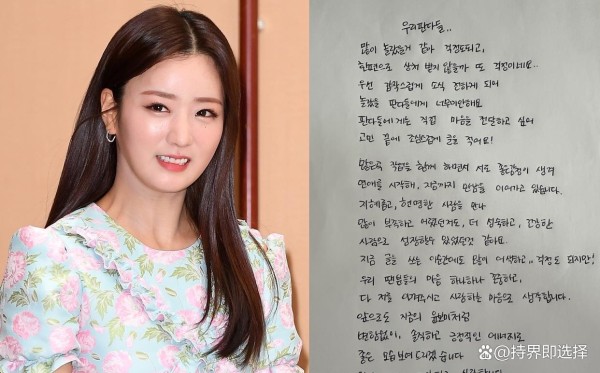 우리판다들..
많이 놀랐을거 같아 걱정도되고,
한편으로 상처 받지 않을까 또 걱정이네요..
우선 갑작스럽게 소식 전하게 되어
놀랐을 판다들에게 너무미안해요
판다들에게는 직접 마음을 전달하고 싶어
고민 끝에 조심스럽게 글을 적어요!
많은곡 작업을 함께 하면서 서로 좋은감정이 생겨
연애를 시작해, 지금까지 만남을 이어가고 있습니다.
지혜롭고, 현명한 사람을 만나
많이 부족하고 어렸던저도, 더 성숙하고, 강한
사람으로 성장할수 있었던것 같아요.
지금 글을 쓰는 이순간에도 많이 어색하고,, 걱정도 되지만!
우리 팬분들의 마음 하나하나 존중하고,
다 저를 아껴주시고 사랑하는 마음으로 생각합니다.
앞으로도 지금의 윤보미처럼
변함없이, 솔직하고 긍정적인 에너지로
좋은 모습 보여드리겠습니다
@持界即选择